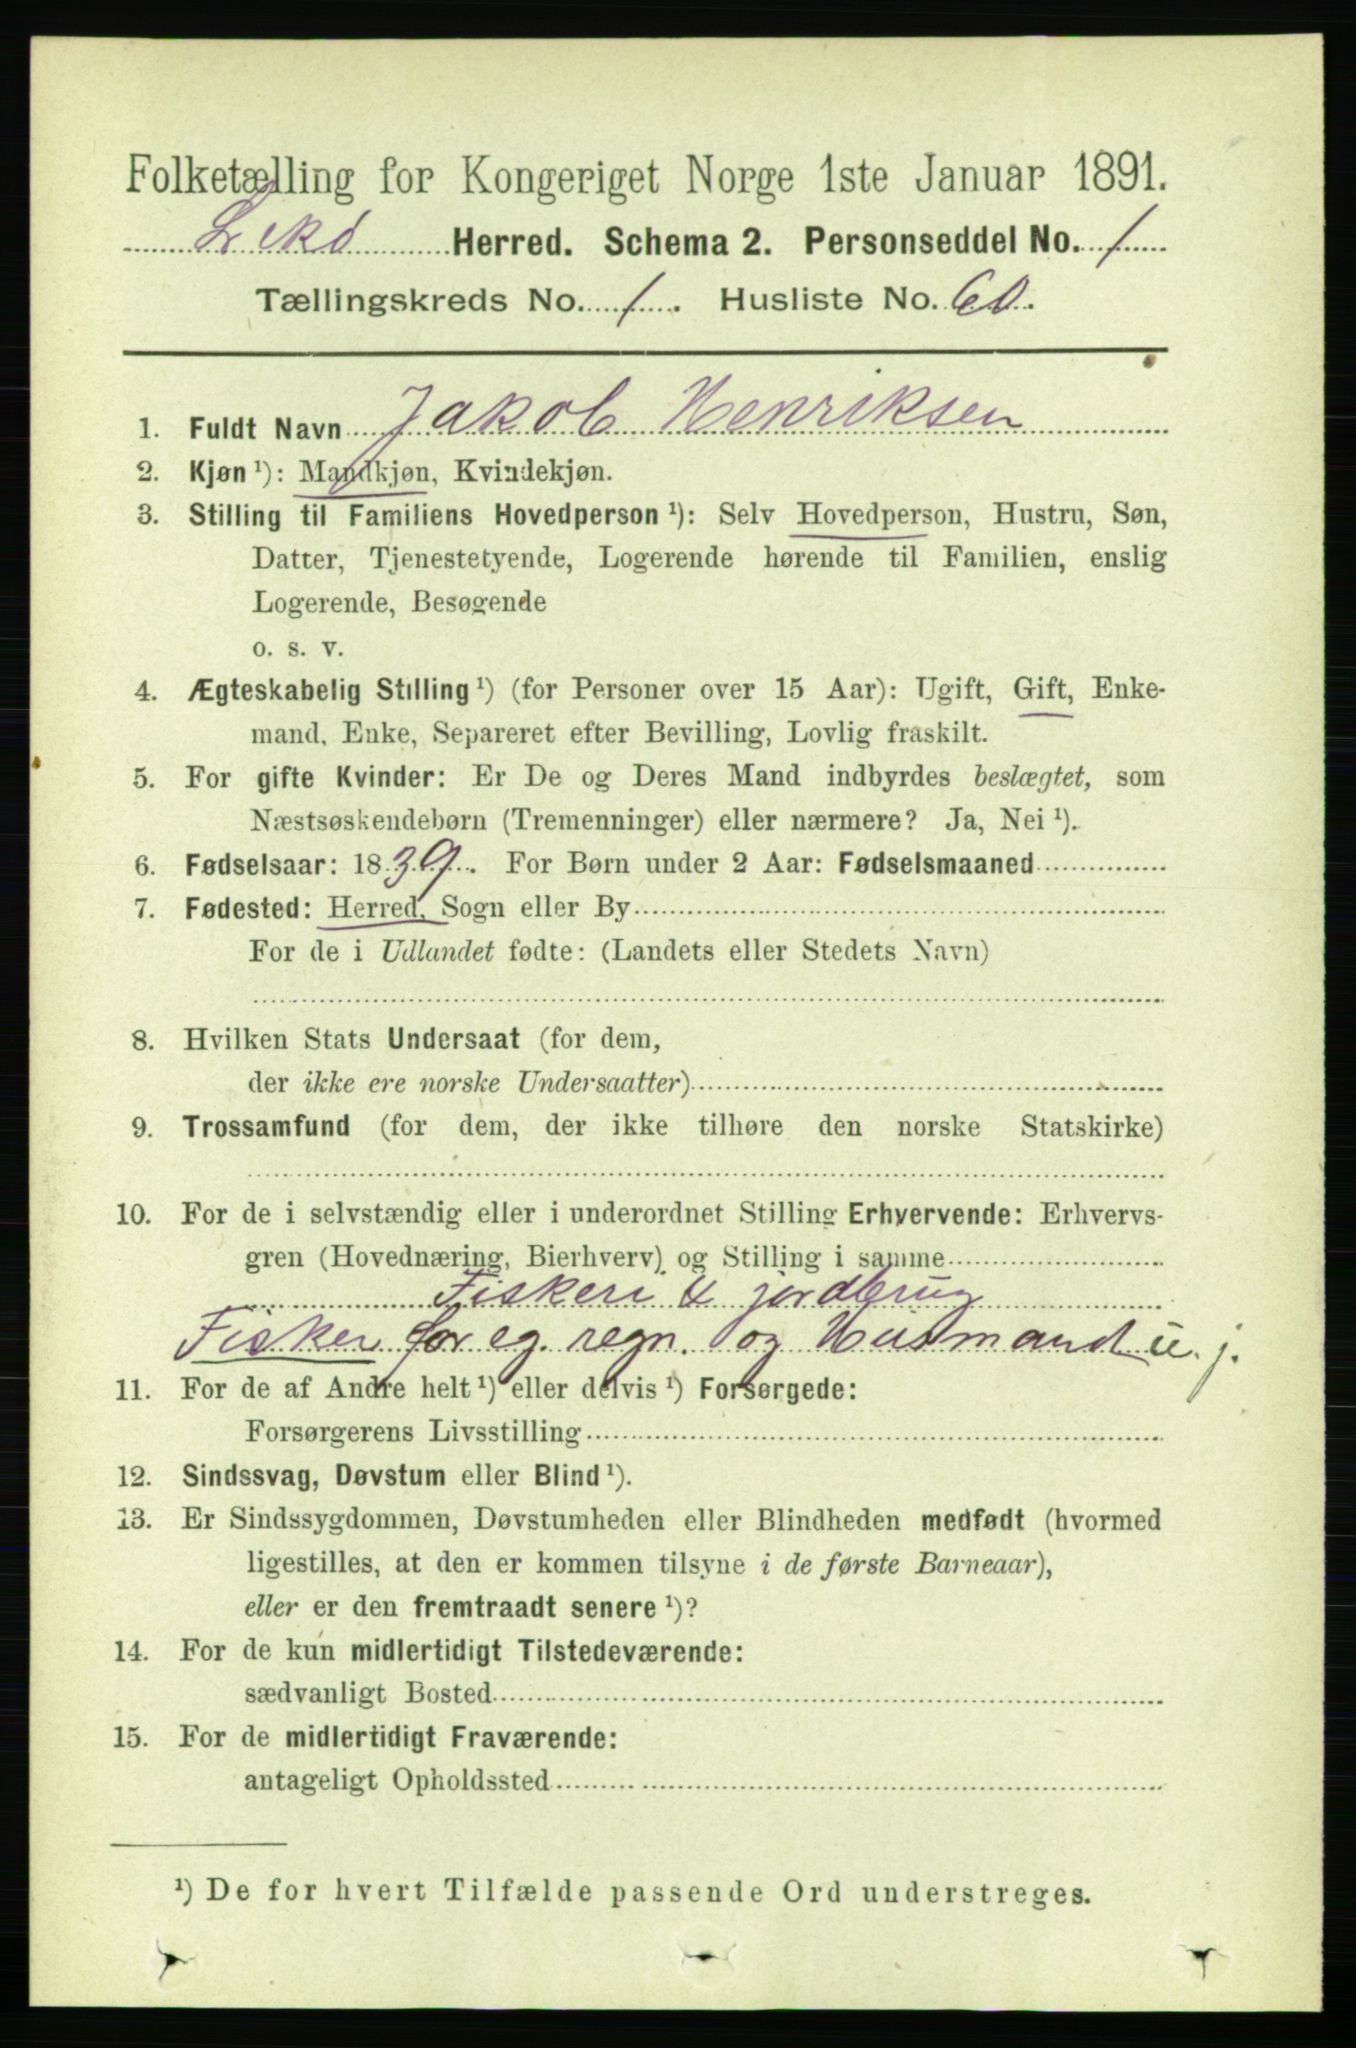 Folketælling for Kongeriget Norge 1ste Januar 1891.
Lekø Herred. Schema 2. Personseddel No. 1
Tællingskreds No. 1. Husliste No. 60.
1. Fuldt Navn Jakob Henriksen
2. Kjøn ¹): Mandkjøn, Kvindekjøn.
3. Stilling til Familiens Hovedperson ¹): Selv Hovedperson, Hustru, Søn,
Datter, Tjenestetyende, Logerende hørende til Familien, enslig
Logerende, Besøgende
o. s. v.
4. Ægteskabelig Stilling ¹) (for Personer over 15 Aar): Ugift, Gift, Enke-
mand, Enke, Separeret efter Bevilling, Lovlig fraskilt.
5. For gifte Kvinder: Er De og Deres Mand indbyrdes beslægtet, som
Næstsøskendebørn (Tremenninger) eller nærmere? Ja, Nei ¹).
6. Fødselsaar: 1839. For Børn under 2 Aar: Fødselsmaaned
7. Fødested: Herred, Sogn eller By
For de i Udlandet fødte: (Landets eller Stedets Navn)
8. Hvilken Stats Undersaat (for dem,
der ikke ere norske Undersaatter)
9. Trossamfund (for dem, der ikke tilhøre den norske Statskirke)
10. For de i selvstændig eller i underordnet Stilling Erhvervende: Erhvervs-
gren (Hovednæring, Bierhverv) og Stilling i samme
Fiskeri & jordbrug
Fisker for eg. regn. og Husmand u. j.
11. For de af Andre helt ¹) eller delvis ¹) Forsørgede:
Forsørgerens Livsstilling
12. Sindssvag, Døvstum eller Blind ¹).
13. Er Sindssygdommen, Døvstumheden eller Blindheden medfødt (hvormed
ligestilles, at den er kommen tilsyne i de første Barneaar),
eller er den fremtraadt senere ¹)?
14. For de kun midlertidigt Tilstedeværende:
sædvanligt Bosted
15. For de midlertidigt Fraværende:
antageligt Opholdssted
¹) De for hvert Tilfælde passende Ord understreges.